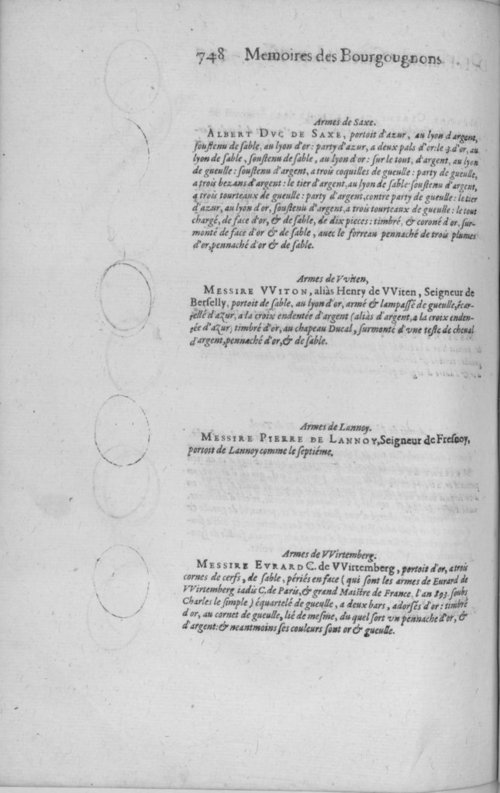 748 Memoires des Bourgougnons
Armes de Saxe.
ALBERT DVC DE SAXE, portoit d'azur, au lyon d'argent,
soustenu de sable, au lyon d'or: party d'azur, a deux pals d'or: le 3. d'or, au
lyon de sable, soustenu de sable, au lyon d'or: sur le tout, d'argent, au lyon
de gueulle: soustenu d'argent, a trois coquilles de gueulle: party de gueulle,
a trois bezans d'argent: le tier d'argent, au lyon de sable soustenu d'argent,
a trois tourteaux de gueulle: party d'argent, contre party de gueulle: le tier
d'azur, au lyon d'or, soustenu d'argent, a trois tourteaux de gueulle: le tout
chargé, de face d'or, & de sable, de dix pieces: timbré, & coroné d'or, sur-
monté de face d'or & de sable, auec le forreau pennaché de trois plumes
d'or, pennaché d'or & de sable.
Armes de Vviten,
MESSIRE VVITON, aliàs Henry de VViten, Seigneur de
Berselly, portoit de sable, au lyon d'or, armé & lampassé de gueulle, écar-
tellé d'azur, a la croix endentée d'argent (aliàs d'argent, a la croix enden-
tée d'azur, timbré d'or, au chapeau Ducal, surmonté d'vne teste de cheual
d'argent, pennaché d'or, & de sable.
Armes de Lannoy.
MESSIRE PIERRE DE LANNOY, Seigneur de Fresnoy,
portoit de Lannoy comme le septiéme,
Armes de VVirtemberg.
MESSIRE EVRARD C. de VVirtemberg, portoit d'or, a trois
cornes de cerfs, de sable, périés en face (qui sont les armes de Eurard de
VVirtemberg iadis C. de Paris, & grand Maistre de France, l'an 893. soubs
Charles le simple) équartelé de gueulle, a deux bars, adorsés d'or: timbré
d'or, au cornet de gueulle, lié de mesme, du quel sort vn pennache d'or, &
d'argent: & neantmoins ses couleurs sont or & gueulle.